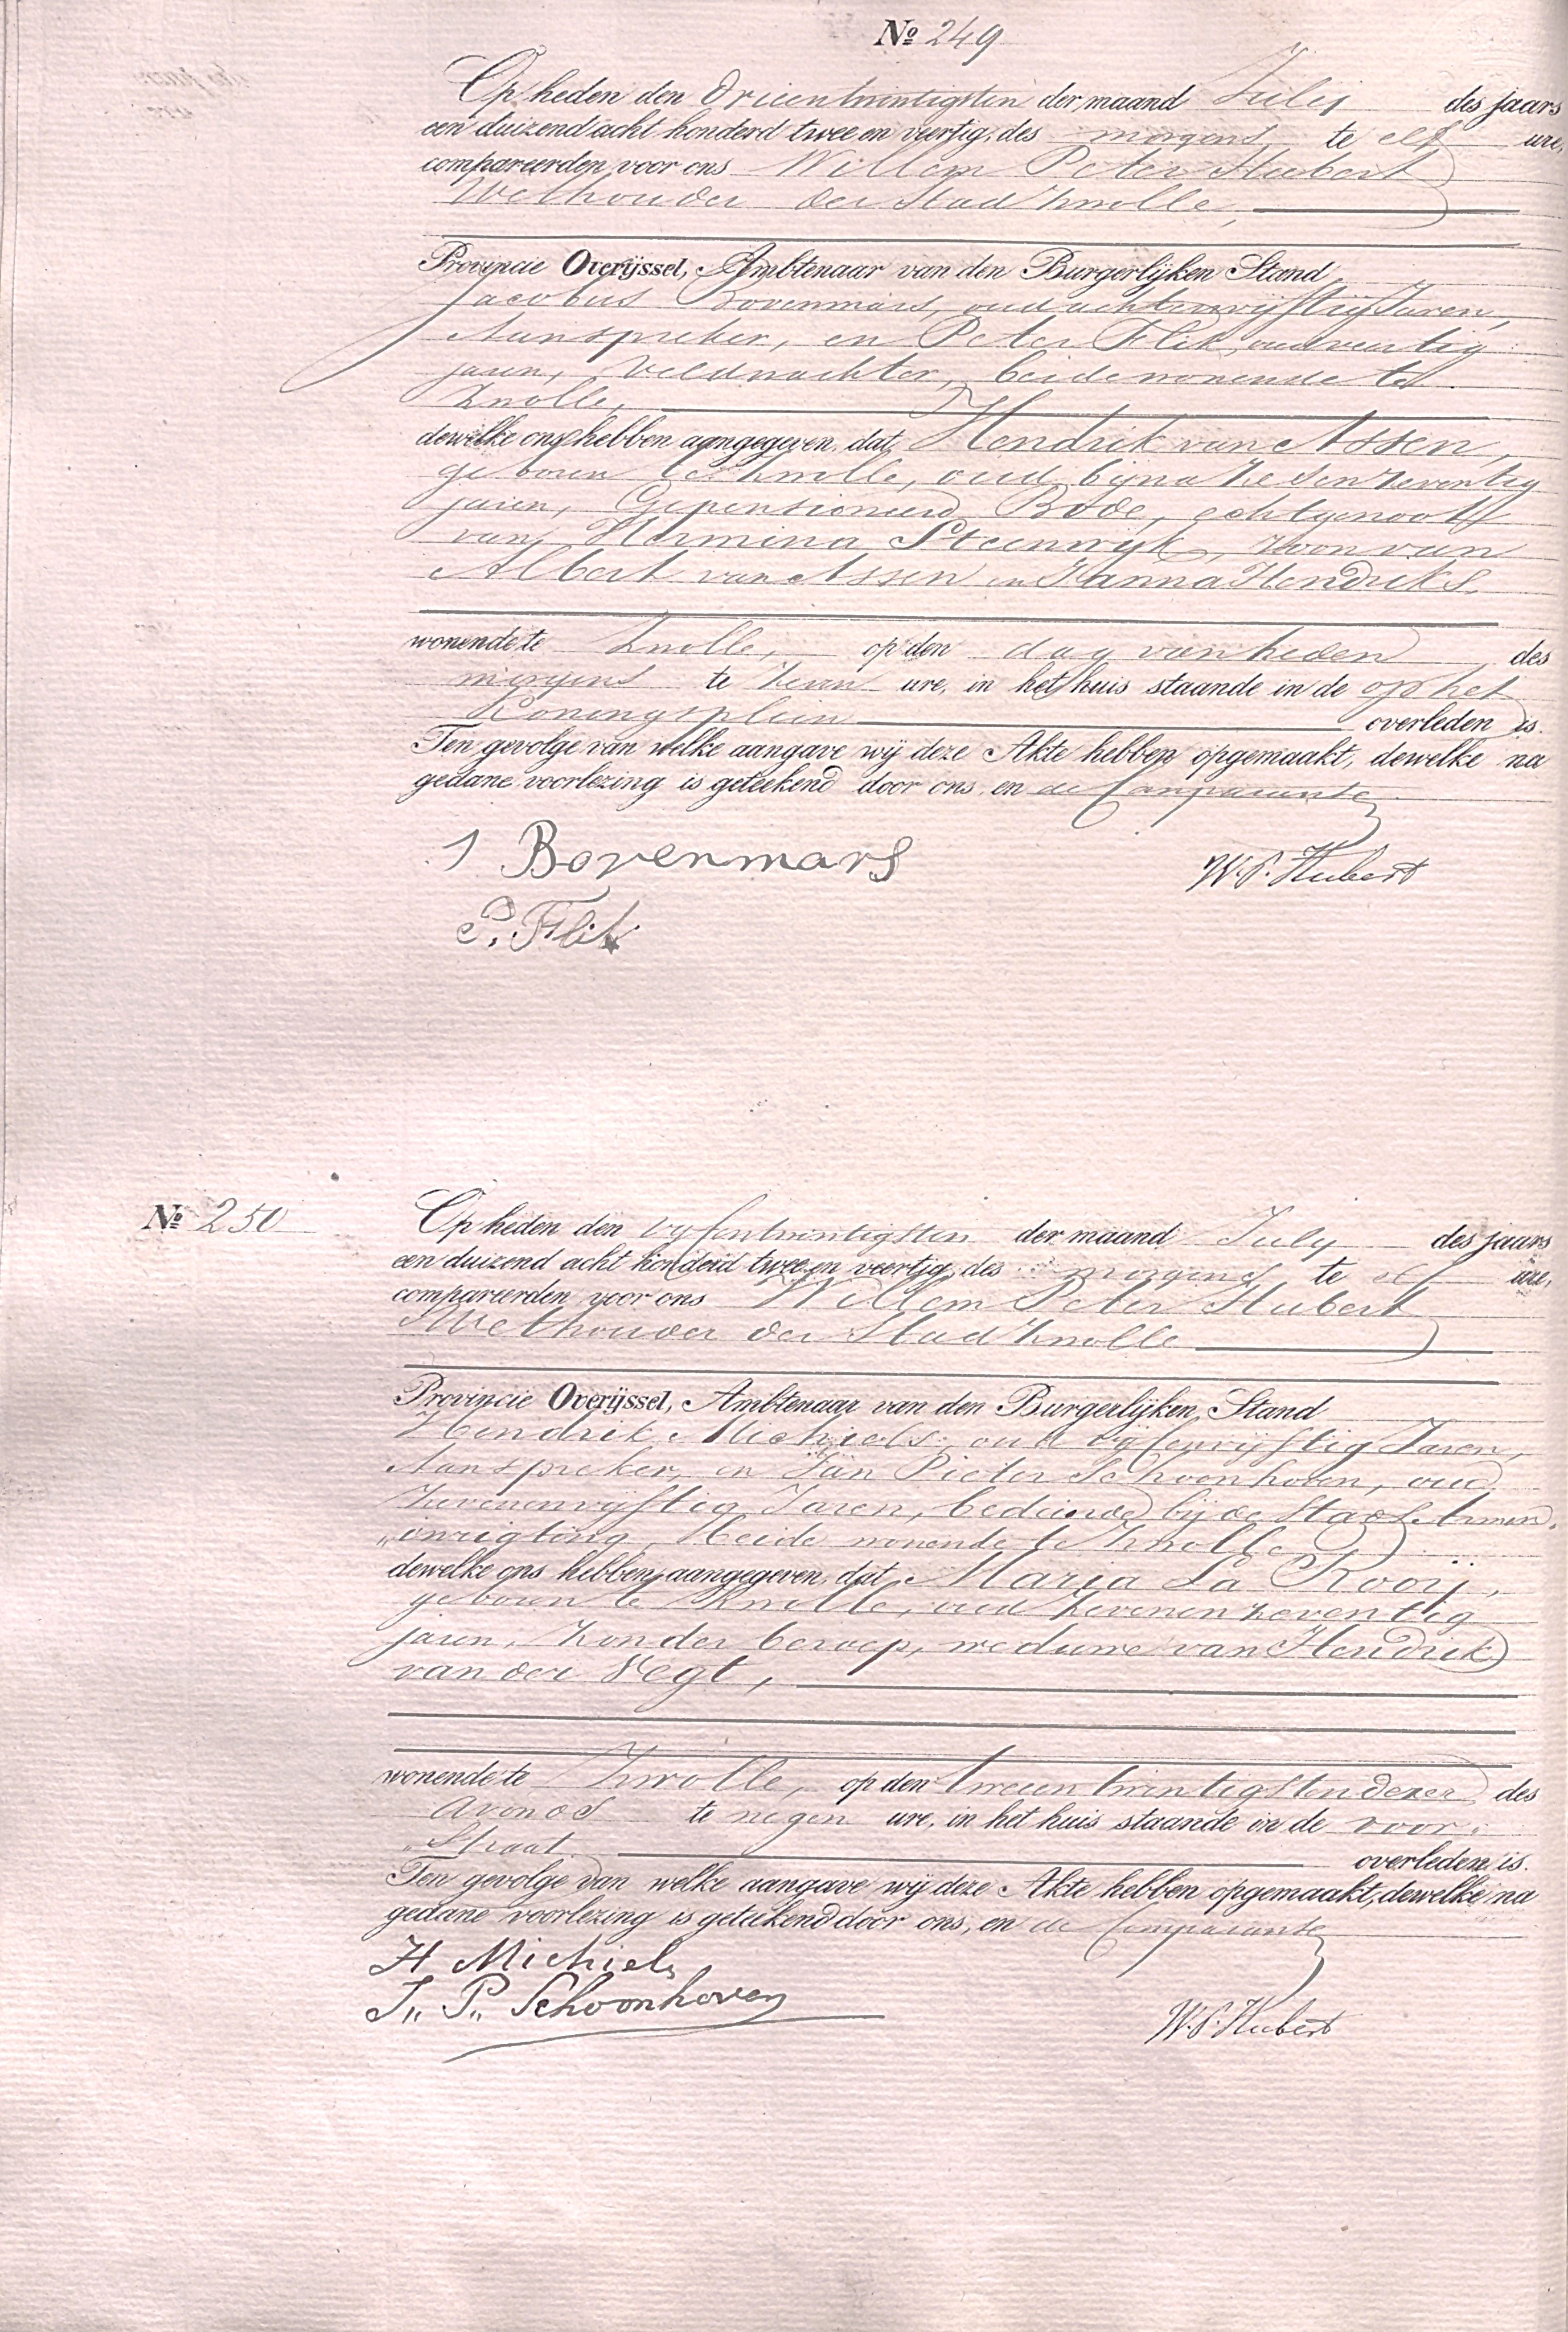 Nº 249
Op heden den drieentwintigsten der maand July des jaars
een duizend acht honderd twee en veertig, des morgens te elf ure,
compareerden voor ons Willem Peter Hubert
Wethouder der Stad Zwolle,
Provincie Overijssel, Ambtenaar van den Burgerlijken Stand
Jacobus Bovenmars, oud achtenvijftig Jaren,
Aanspreker, en Peter Flik, oud veertig
jaren, Veldwachter, beide wonende te
Zwolle,
dewelke ons hebben aangegeven, dat Hendrik van Assen,
geboren te Zwolle, oud bijna zesenzeventig
jaren, Gepensioneerd Bode, echtgenoot
van Hermina Steenwijk, zoon van
Albert van Assen en Janna Hendriks.
wonende te Zwolle, op den dag van heden, des
morgens te zeven ure, in het huis staande in de op het
Koningsplein overleden is.
Ten gevolge van welke aangave wij deze Akte hebben opgemaakt, dewelke na
gedane voorlezing is geteekend door ons, en de Comparante
J Bovenmars
W. P. Hubert
P. Flik
Nº 250
Op heden den vyfentwintigsten der maand July des jaars
een duizend acht honderd twee en veertig, des morgens te elf ure,
compareerden voor ons Willem Peter Hubert
Wethouder der Stad Zwolle
Provincie Overijssel, Ambtenaar van den Burgerlijken Stand
Hendrik Michiels, oud vijfenvijftig Jaren,
Aanspreker, en Jan Pieter Schoonhoven, oud
Zevenenvijftig Jaren, bediende bij de Stads Armen
„inrigting, Beide wonende te Zwolle
dewelke ons hebben aangegeven, dat Maria La Rooij,
geboren te Zwolle, oud zevenenzeventig
jaren, zonder beroep, weduwe van Hendrik
van der Vegt,
wonende te Zwolle, op den tweeentwintigsten dezer, des
avonds te negen ure, in het huis staande in de voor„
„Straat overleden is.
Ten gevolge van welke aangave wij deze Akte hebben opgemaakt, dewelke na
gedane voorlezing is geteekend door ons, en de Comparante
H Michiels
J,, P,, Schoonhoven
W. P. Hubert